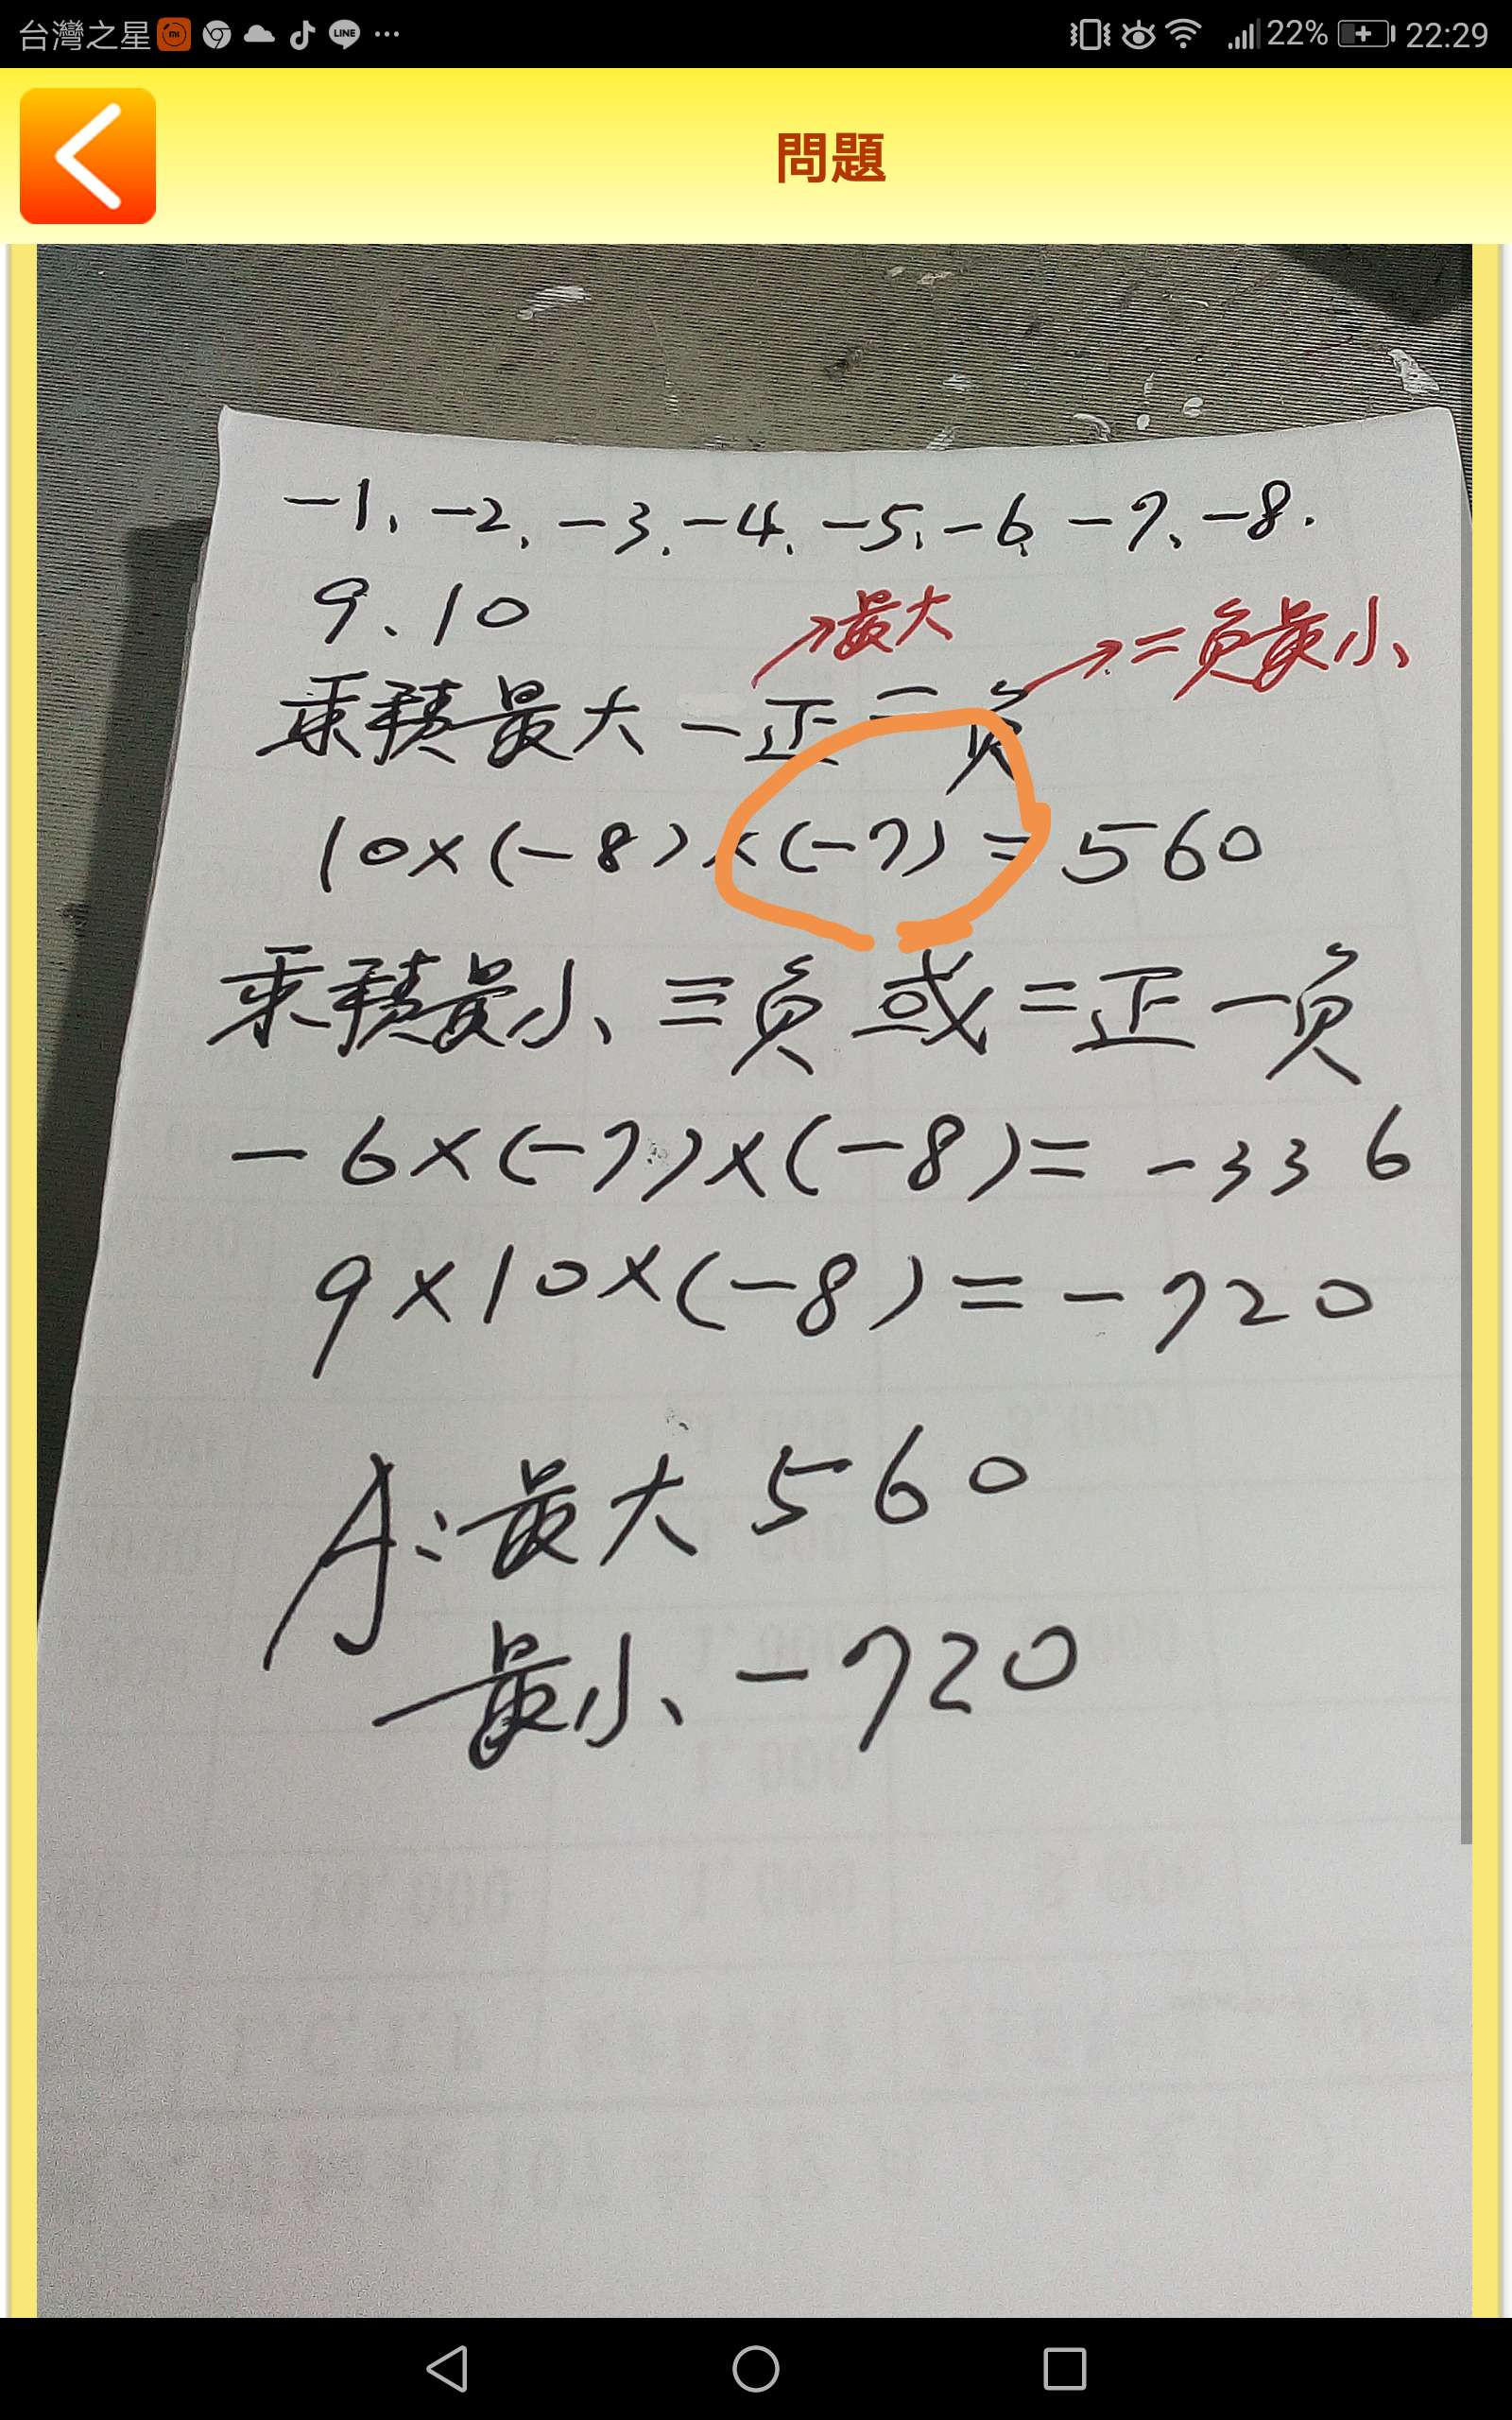 台灣之星 LINE ... 22% 22:29
問題
-1、-2、-3、-4、-5、-6、-7、-8、
9、10
最大 二負最小
乘積最大 一正二負
10×(-8)×(-7)=560
乘積最小 三負或二正一負
-6×(-7)×(-8)=-336
9×10×(-8)=-720
A:最大560
最小-720